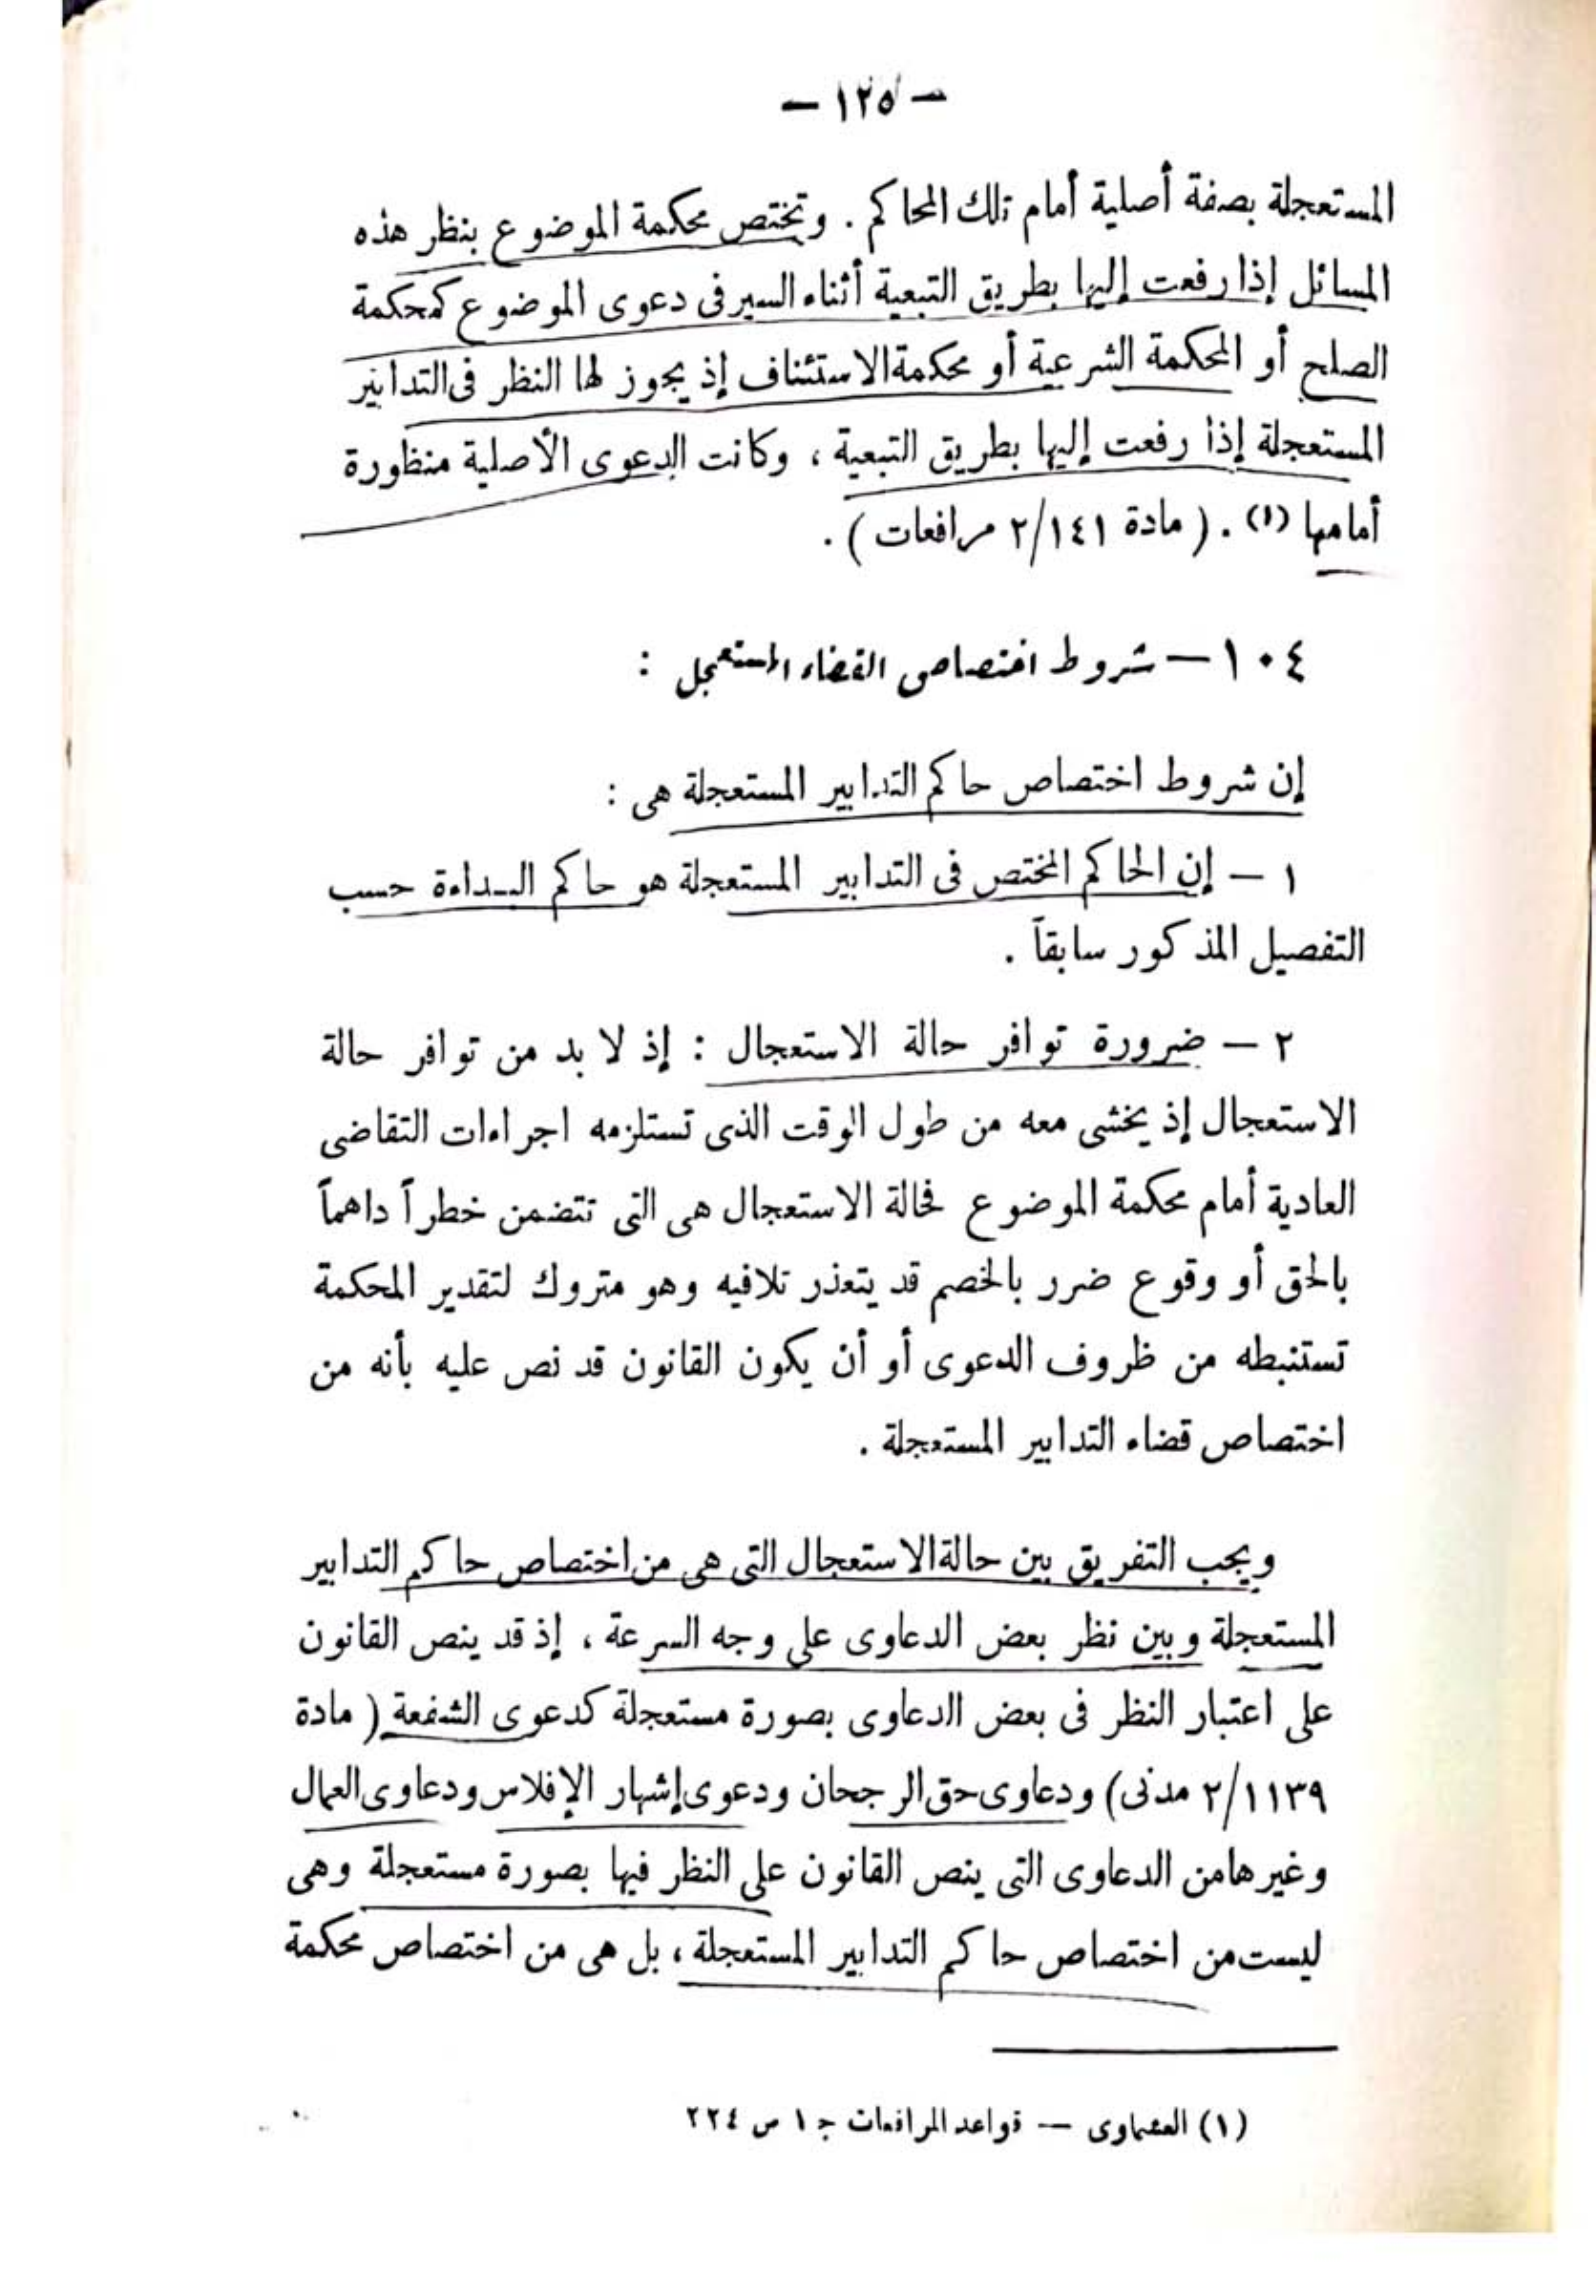 — ١٢٥ —
المستعجلة بصفة أصلية أمام تلك المحاكم . وتختص محكمة الموضوع بنظر هذه
المسائل إذا رفعت إليها بطريق التبعية أثناء السير فى دعوى الموضوع كمحكمة
الصلح أو المحكمة الشرعية أو محكمة الاستئناف إذ يجوز لها النظر فى التدابير
المستعجلة إذا رفعت إليها بطريق التبعية ، وكانت الدعوى الأصلية منظورة
أمامها (١) . ( مادة ٢/١٤١ مرافعات ) .
١٠٤ — شروط اختصاص القضاء المستعجل :
إن شروط اختصاص حاكم التدابير المستعجلة هى :
١ — إن الحاكم المختص فى التدابير المستعجلة هو حاكم البداءة حسب
التفصيل المذكور سابقاً .
٢ — ضرورة توافر حالة الاستعجال : إذ لا بد من توافر حالة
الاستعجال إذ يخشى معه من طول الوقت الذى تستلزمه اجراءات التقاضى
العادية أمام محكمة الموضوع فحالة الاستعجال هى التى تتضمن خطراً داهماً
بالحق أو وقوع ضرر بالخصم قد يتعذر تلافيه وهو متروك لتقدير المحكمة
تستنبطه من ظروف الدعوى أو أن يكون القانون قد نص عليه بأنه من
اختصاص قضاء التدابير المستعجلة .
ويجب التفريق بين حالة الاستعجال التى هى من اختصاص حاكم التدابير
المستعجلة وبين نظر بعض الدعاوى على وجه السرعة ، إذ قد ينص القانون
على اعتبار النظر فى بعض الدعاوى بصورة مستعجلة كدعوى الشفعة ( مادة
٢/١١٣٩ مدنى ) ودعاوى حق الرجحان ودعوى إشهار الإفلاس ودعاوى العمال
وغيرها من الدعاوى التى ينص القانون على النظر فيها بصورة مستعجلة وهى
ليست من اختصاص حاكم التدابير المستعجلة ، بل هى من اختصاص محكمة
(١) العشماوى — قواعد المرافعات ج ١ ص ٢٢٤